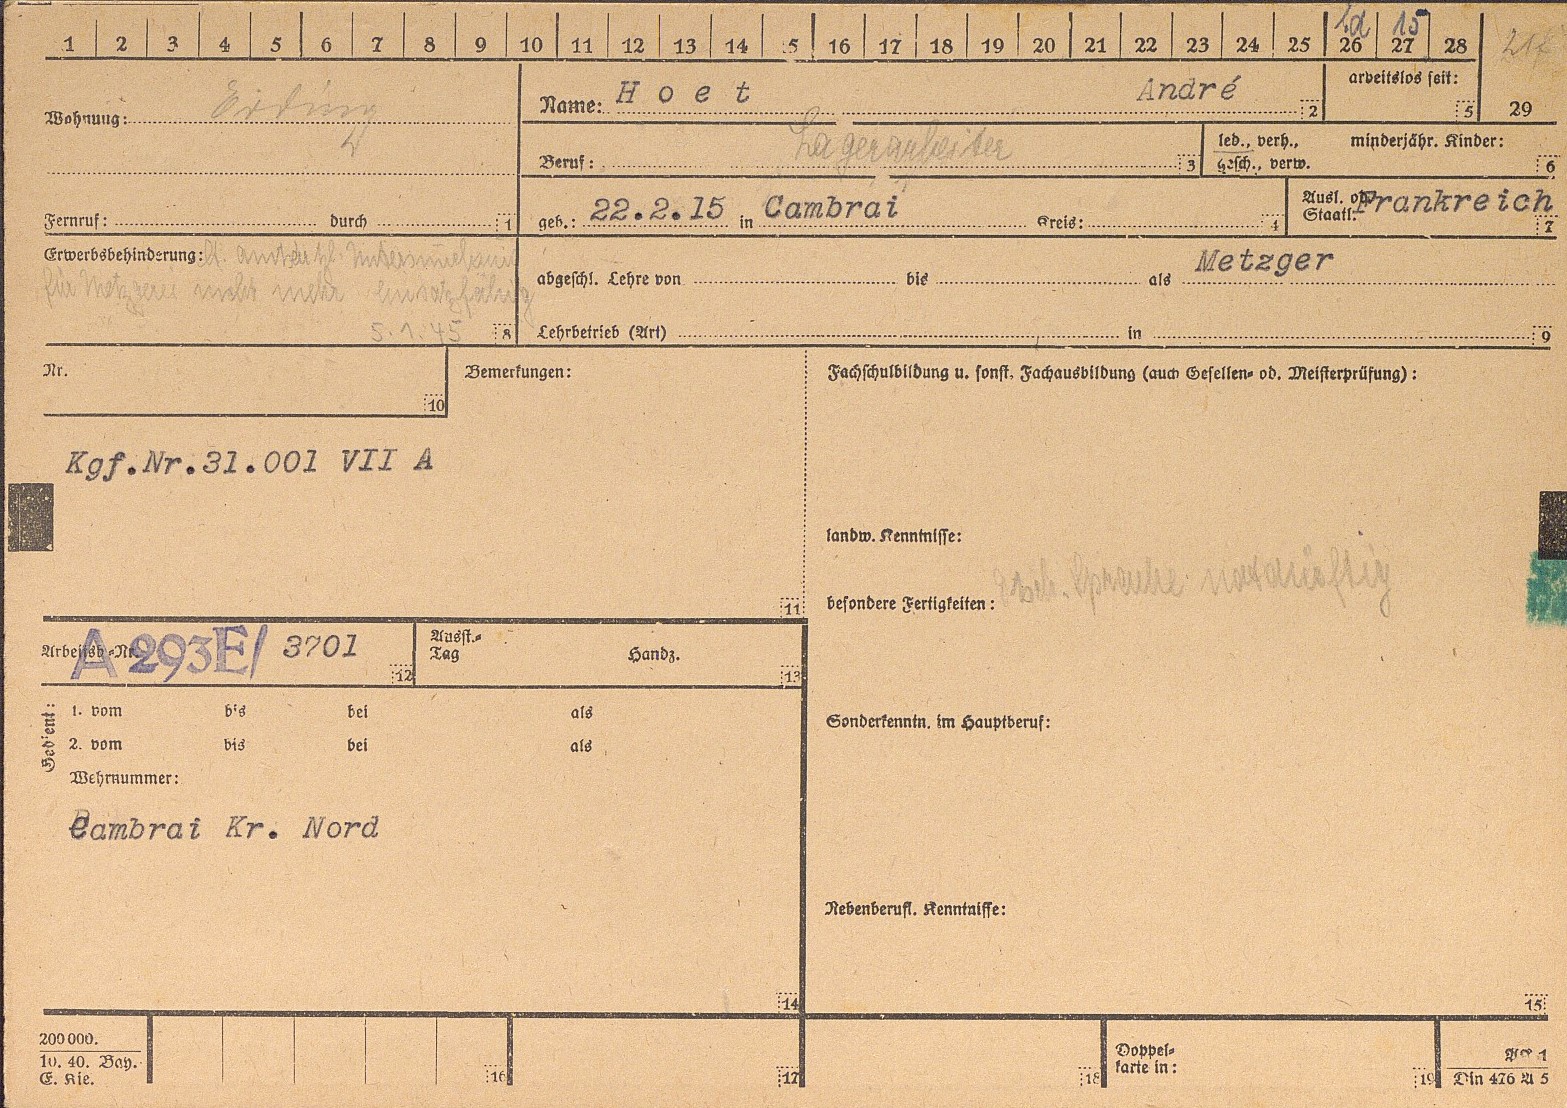 1 2 3 4 5 6 7 8 9 10 11 12 13 14 15 16 17 18 19 20 21 22 23 24 25 26 27 28
15
Wohnung: Erding
Name: Hoet André 2
arbeitslos seit: 5
29
Beruf: Lagerarbeiter 3
led., verh., gesch., verw.
minderjähr. Kinder: 6
Fernruf: durch 1
geb.: 22.2.15 in Cambrai Kreis: 4
Ausl. od. Staatl. Frankreich 7
Erwerbsbehinderung: lt. amtsärztl. Untersuchung
für Metzgerei nicht mehr einsatzfähig
5.1.45 8
abgeschl. Lehre von bis als Metzger
Lehrbetrieb (Art) in 9
Nr. 10
Bemerkungen:
Kgf.Nr.31.001 VII A
11
Fachschulbildung u. sonst. Fachausbildung (auch Gesellen- od. Meisterprüfung):
landw. Kenntnisse:
besondere Fertigkeiten: Sprache notdürftig
Arbeitsb-Nr. A 293E/ 3701 12
Ausst.-Tag Handz. 13
Gedient:
1. vom bis bei als
2. vom bis bei als
Wehrnummer:
Cambrai Kr. Nord
14
Sonderkenntn. im Hauptberuf:
Nebenberufl. Kenntnisse:
15
200 000.
10. 40. Bay.
E. Kie.
16
17
18
Doppelkarte in:
19
1
Din 476 A 5